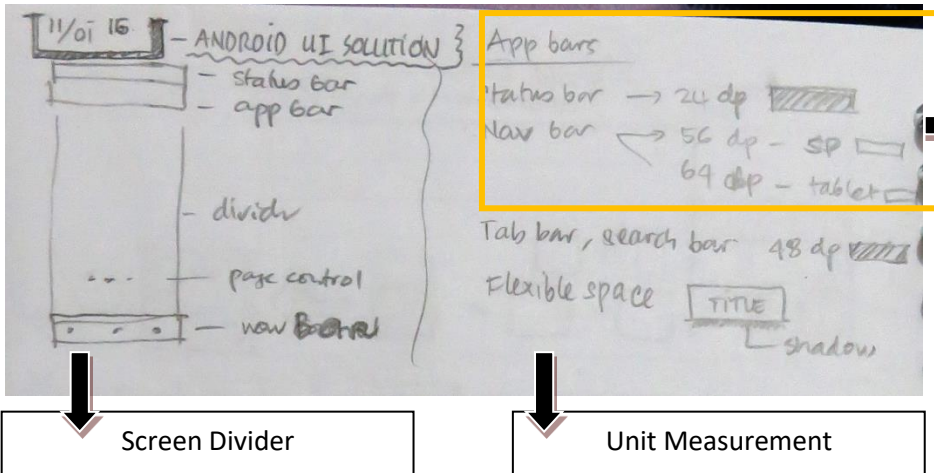 11/01 16 - ANDROID UI SOLUTION }
- status bar
- app bar
- divider
- page control
- nav
App bars
Status bar → 24 dp
Nav bar → 56 dp - sp
64 dp - tablet
Tab bar, search bar 48 dp
Flexible space TITLE
shadow
Screen Divider
Unit Measurement